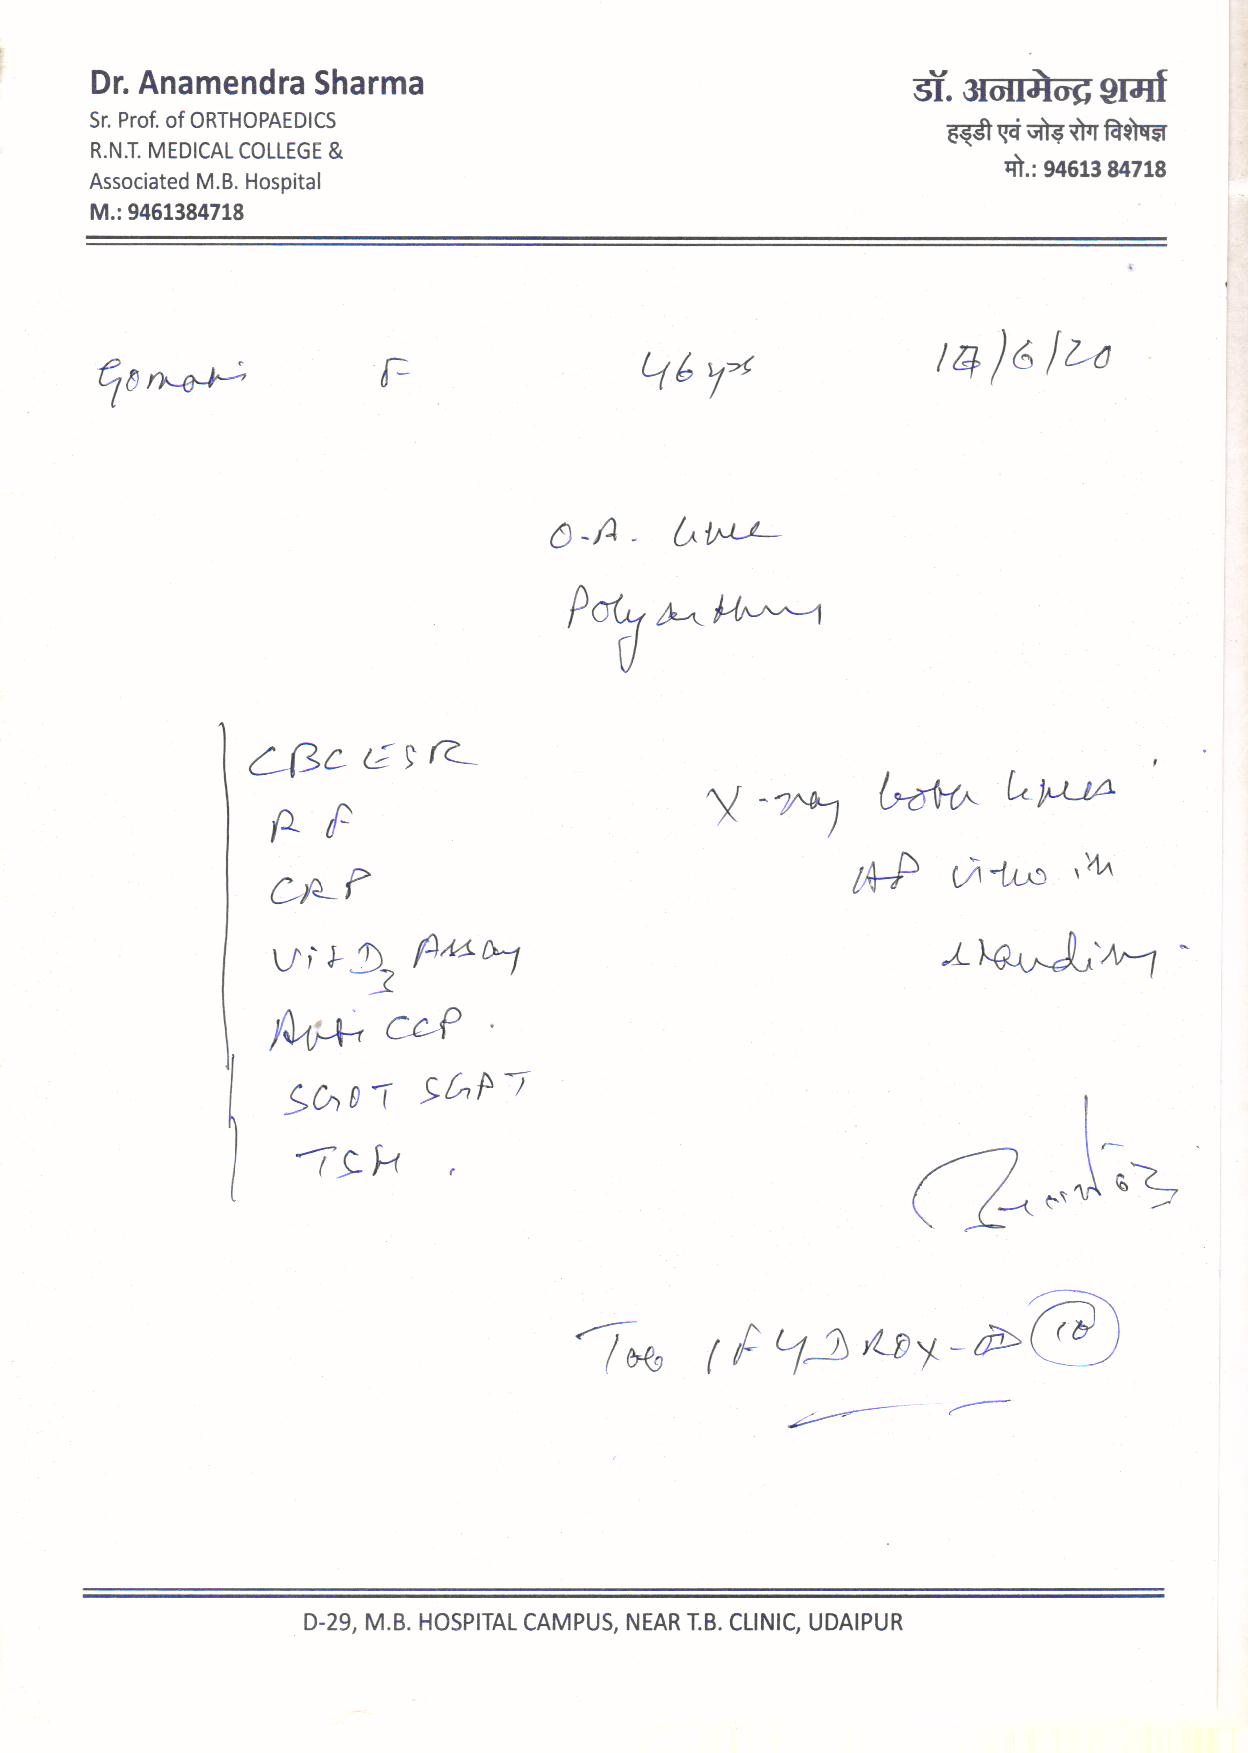 Dr. Anamendra Sharma
Sr. Prof. of ORTHOPAEDICS
R.N.T. MEDICAL COLLEGE &
Associated M.B. Hospital
M.: 9461384718
डॉ. अनामेन्द्र शर्मा
हड्डी एवं जोड़ रोग विशेषज्ञ
मो.: 94613 84718
F 46 yrs /6/20
O.A. knee
Polyarthritis
CBC ESR
RF
CRP
Vit D3 Assay
Anti CCP
SGOT SGPT
TSH
X-ray both knees
AP view in
standing
Tab
10
D-29, M.B. HOSPITAL CAMPUS, NEAR T.B. CLINIC, UDAIPUR